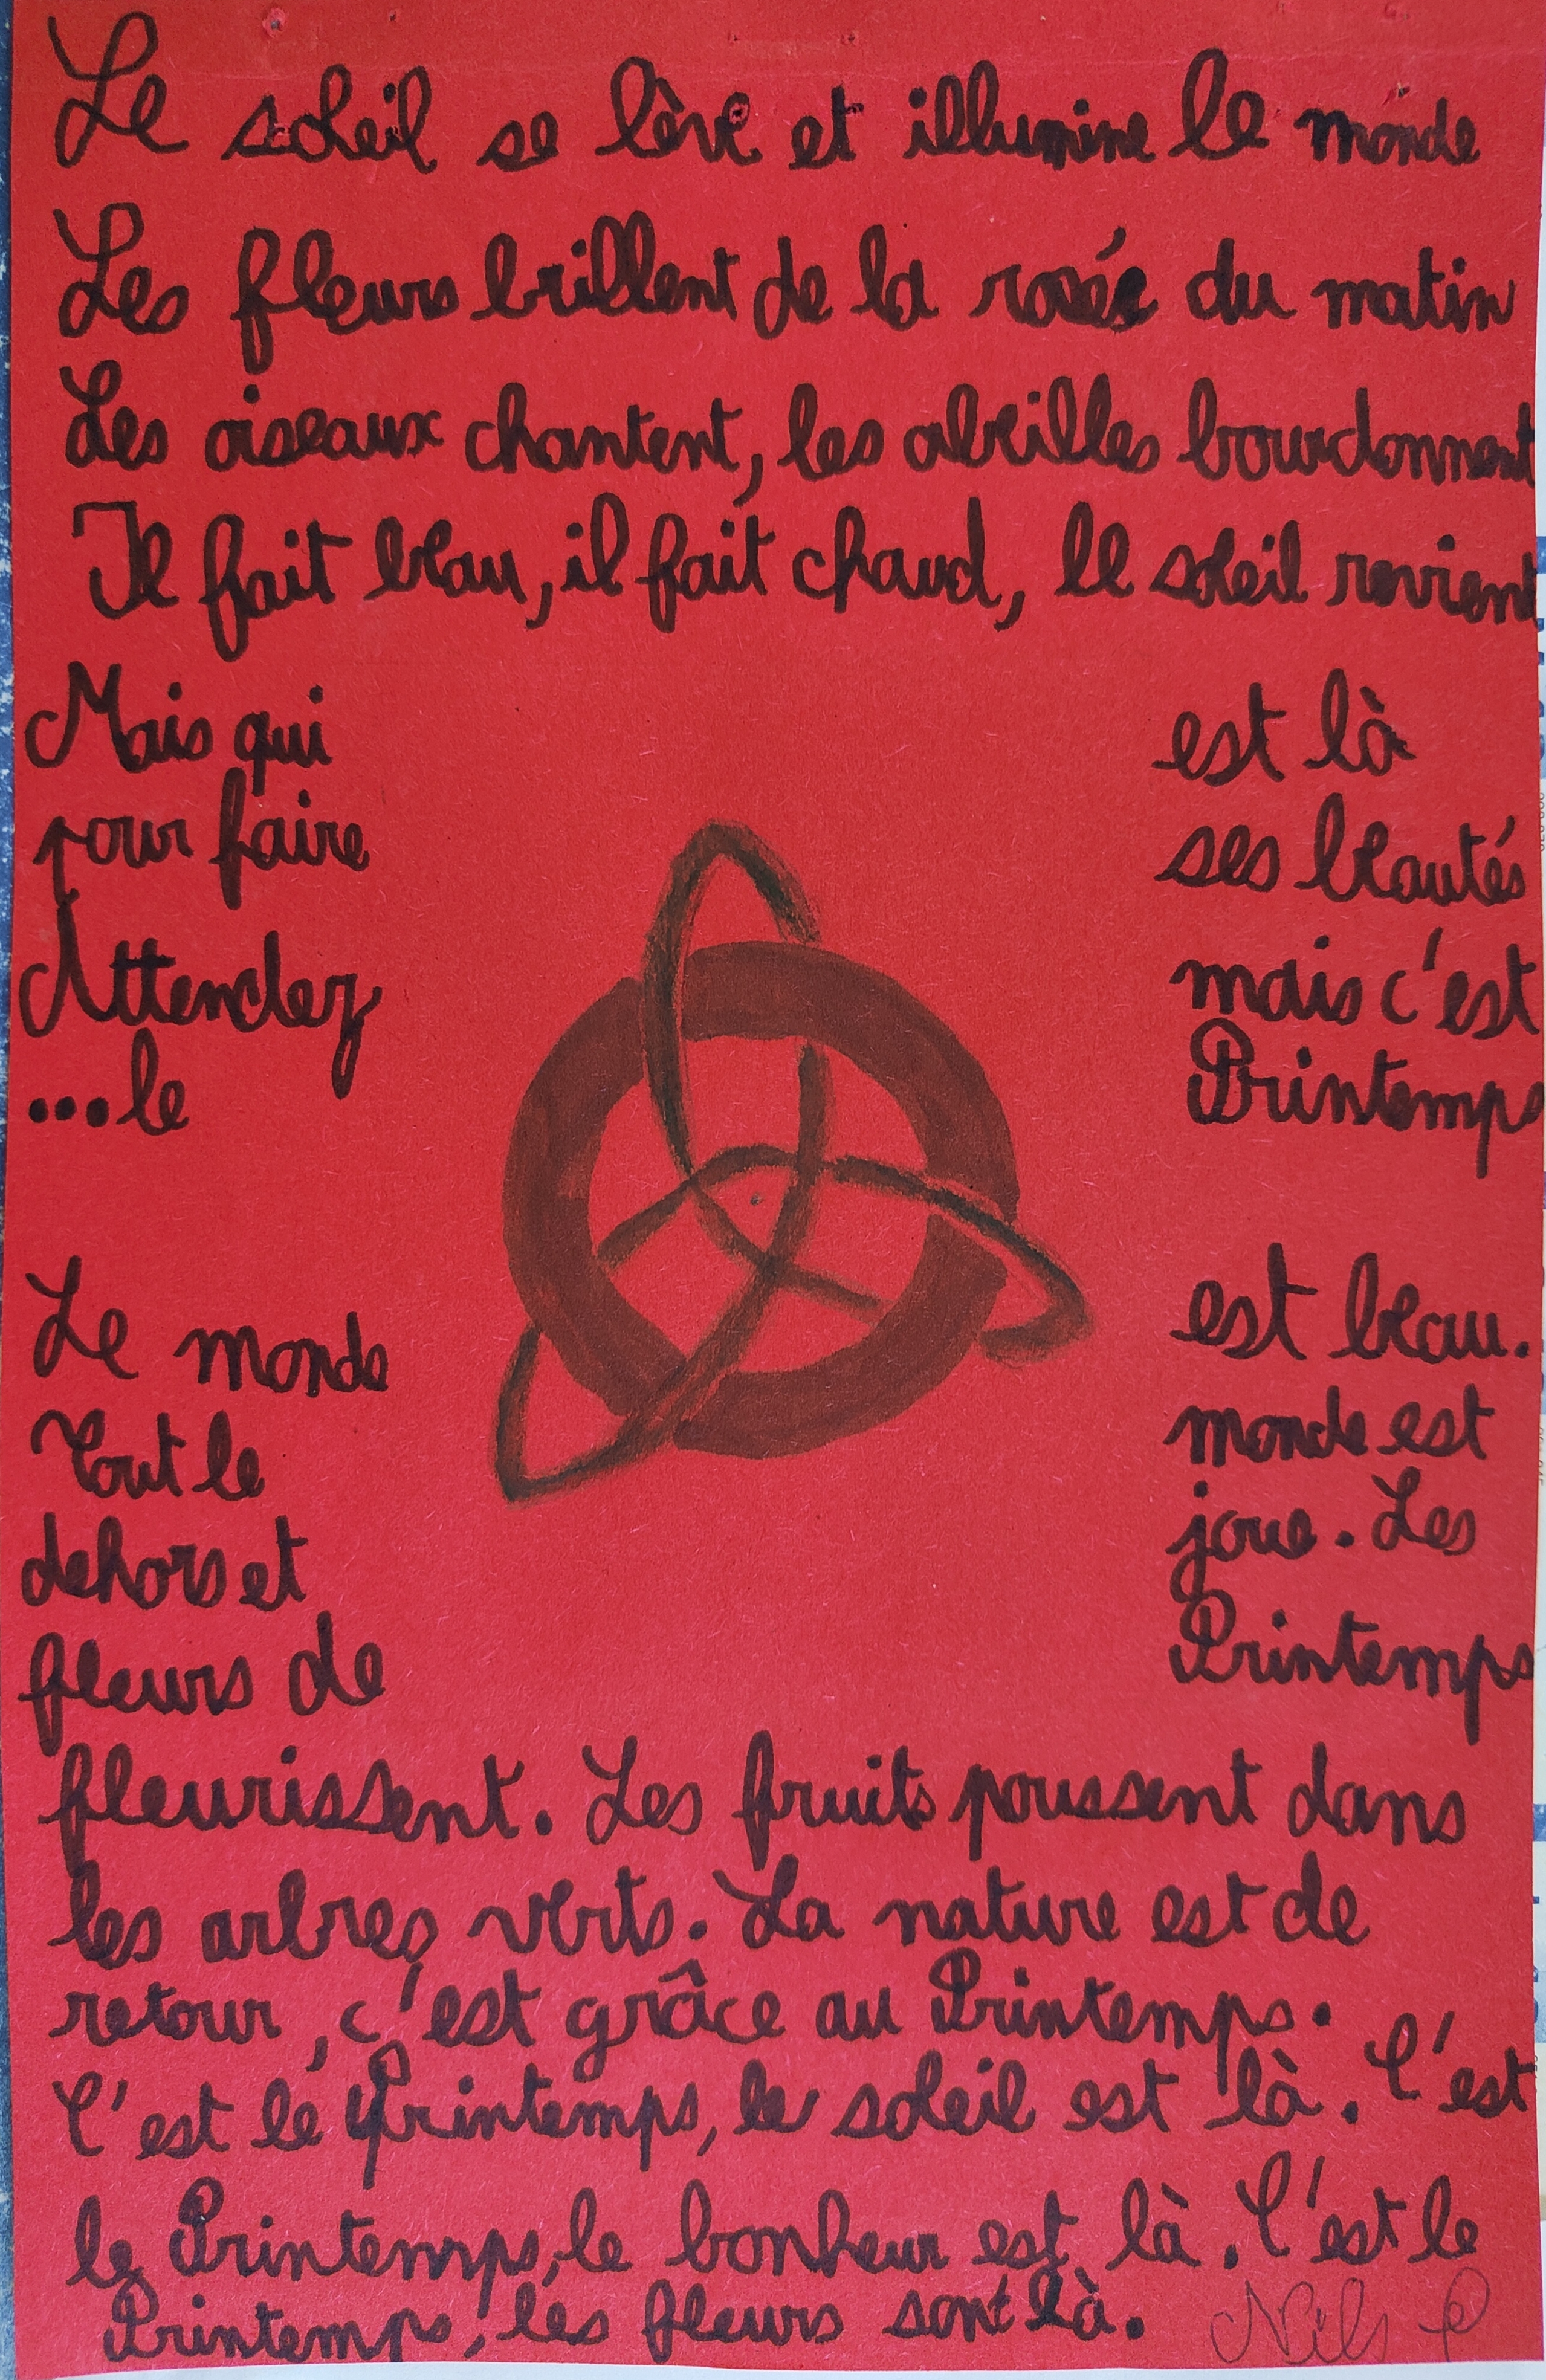 Le soleil se lève et illumine le monde
Les fleurs brillent de la rosée du matin
Les oiseaux chantent, les abeilles bourdonnent
Il fait beau, il fait chaud, le soleil revient
Mais qui est là
pour faire ses beautés
Attendez mais c'est
...le Printemps
Le monde est beau.
Tout le monde est
dehors et joue. Les
fleurs de Printemps
fleurissent. Les fruits poussent dans
les arbres verts. La nature est de
retour, c'est grâce au Printemps.
C'est le Printemps, le soleil est là. C'est
le Printemps, le bonheur est là. C'est le
Printemps, les fleurs sont là. Nils P